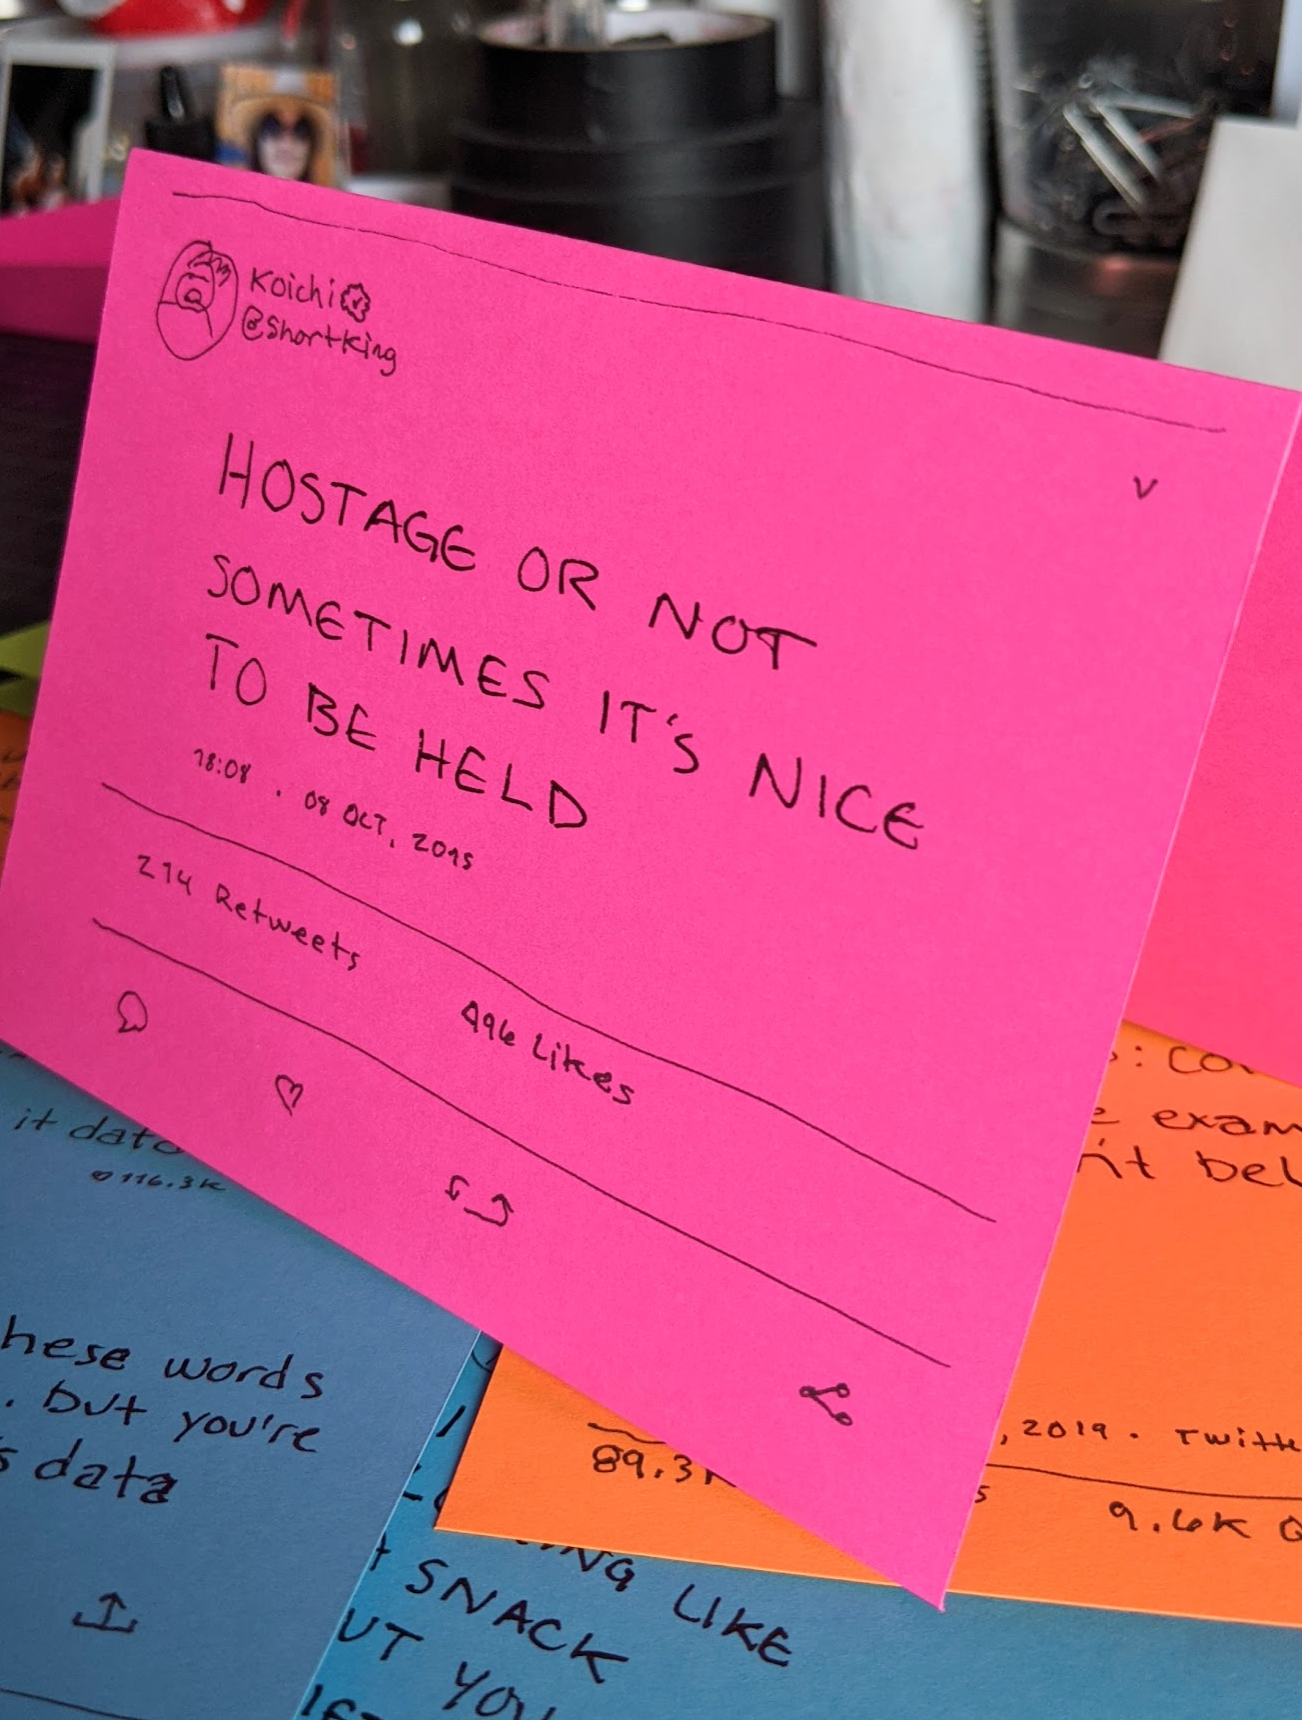 Koichi
@ShortKing
V
HOSTAGE OR NOT
SOMETIMES IT'S NICE
TO BE HELD
18:08 . 08 OCT, 2015
214 Retweets 496 Likes
it data
116.3K
hese words
. but you're
s data
: CO
e exam
n't bel
, 2019 . Twitt
89.3K
s 9.6K Q
ING LIKE
SNACK
UT YOU